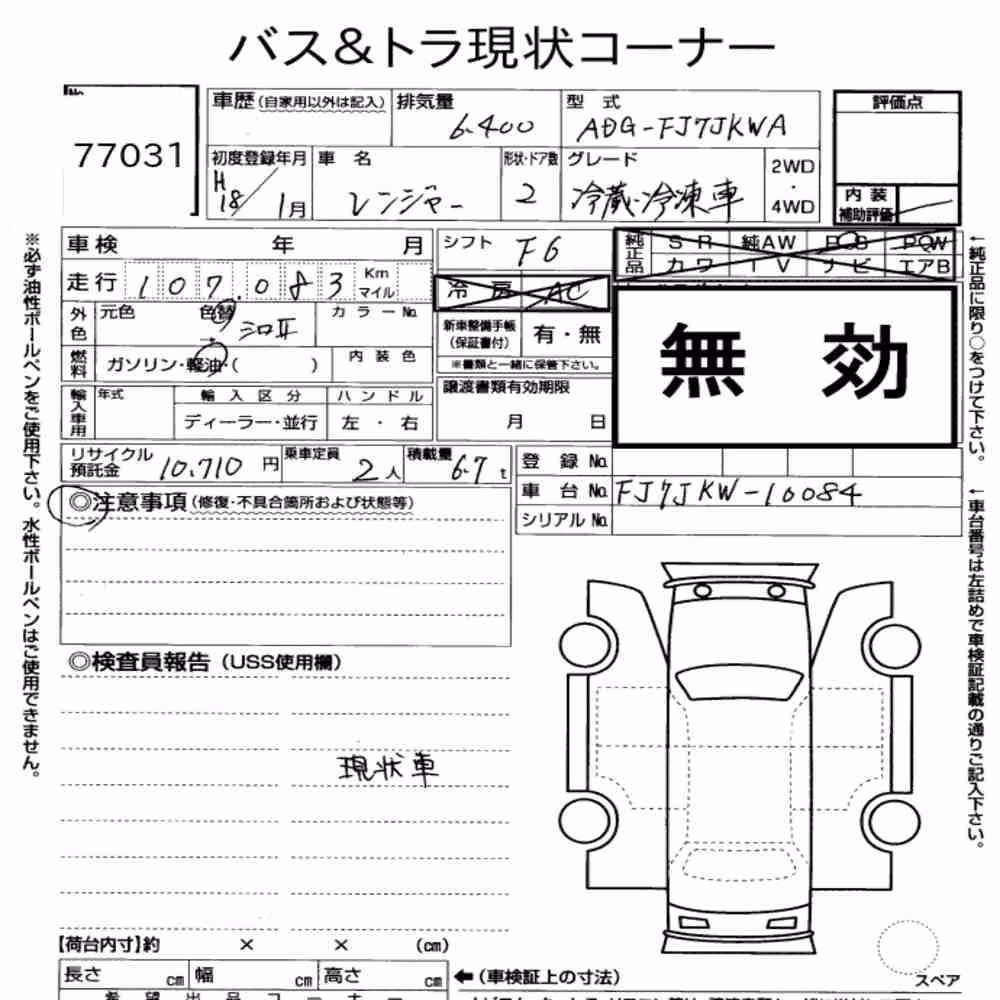 バス&トラ現状コーナー
No.
77031
車歴(自家用以外は記入)
排気量
6.400
型 式
ADG-FJ7JKWA
評価点
初度登録年月
H18/1月
車 名
レンジャー
形状・ドア数
2
グレード
冷蔵・冷凍車
2WD
・
4WD
内 装
補助評価
車検 年 月
シフト F6
純正品
S R
純AW
P S
P W
カ ワ
T V
ナ ビ
エアB
走行 107.083 Km マイル
冷 房 AC
外色
元色
色替
シロII
カ ラ ー No.
新車整備手帳
(保証書付)
有・無
※書類と一緒に保管下さい。
燃料
ガソリン・軽油・( )
内 装 色
無 効
輸入車用
年式
輸 入 区 分
ハ ン ド ル
ディーラー・並行
左 ・ 右
譲渡書類有効期限
月 日
リサイクル
預託金
10,710 円
乗車定員
2人
積載量
6.7 t
登 録 No.
車 台 No. FJ7JKW-10084
シリアル No.
◎注意事項(修復・不具合箇所および状態等)
◎検査員報告(USS使用欄)
現状車
【荷台内寸】約 × × (cm)
長さ cm
幅 cm
高さ cm
←(車検証上の寸法)
スペア
※必ず油性ボールペンをご使用下さい。水性ボールペンはご使用できません。
←純正品に限り○をつけて下さい。
←車台番号は左詰めで車検証記載の通りご記入下さい。